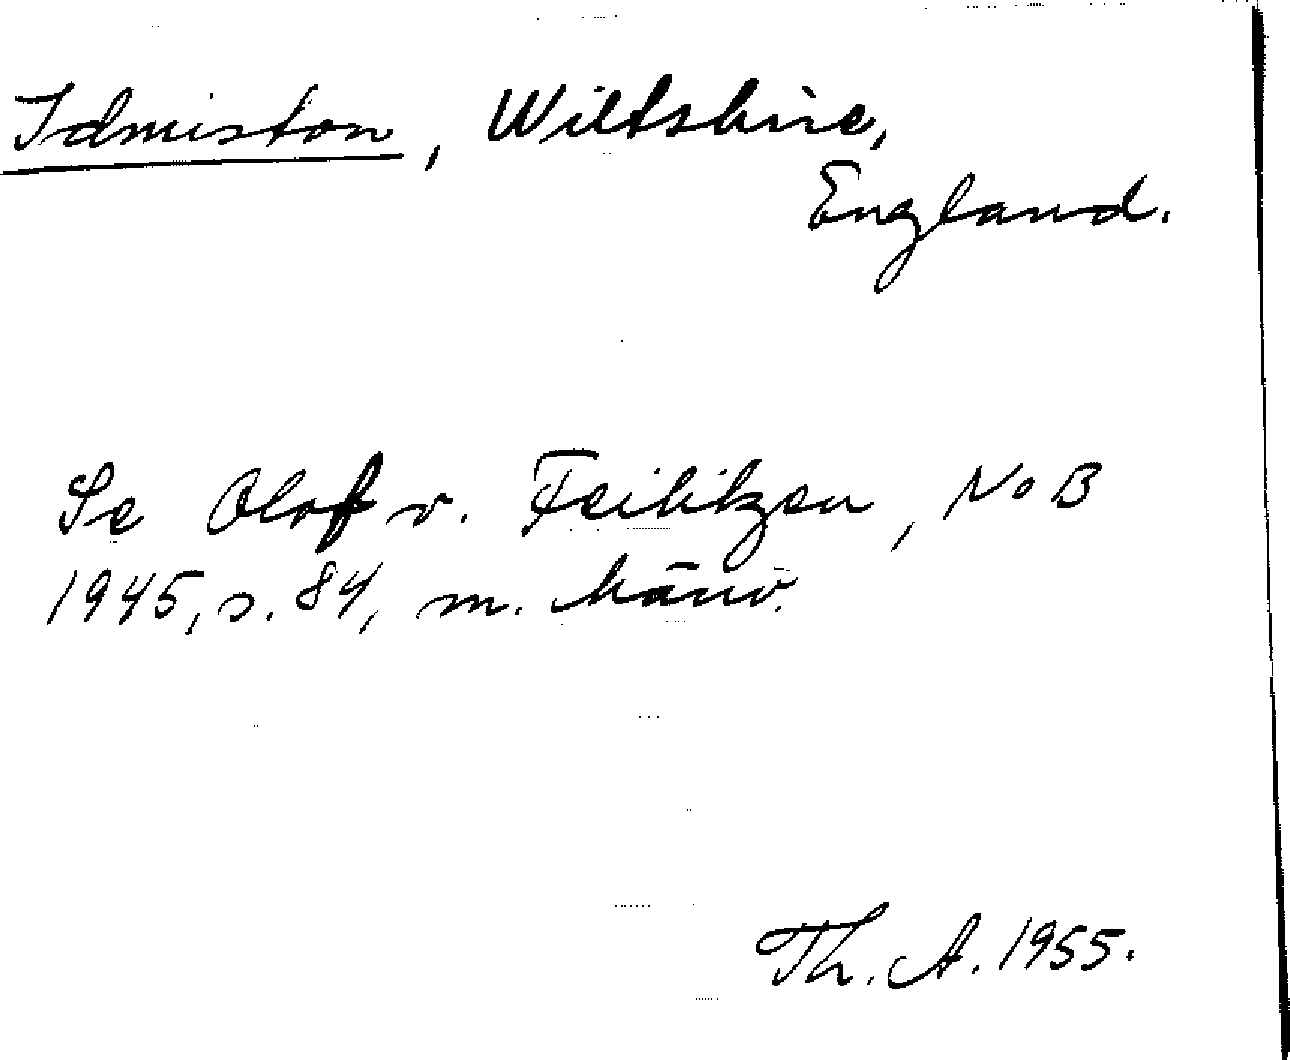 Idmiston, Wiltshire,
England.
Se Olof v. Feilitzen, NoB
1945, s. 84, m. hänv.
Th. A. 1955.